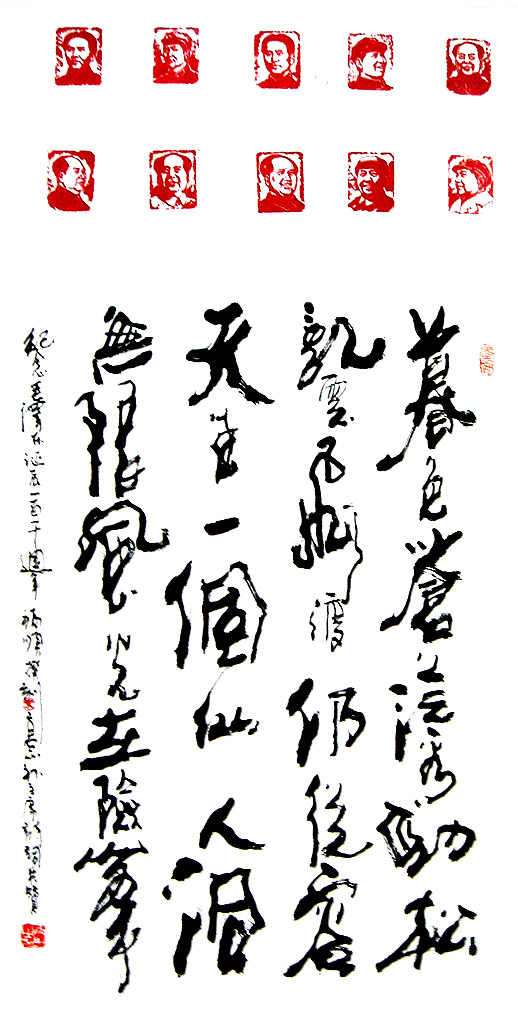 暮色蒼茫看勁松
亂雲飛渡仍從容
天生一個仙人洞
無限風光在險峯
紀念毛澤東誕辰一百十週年